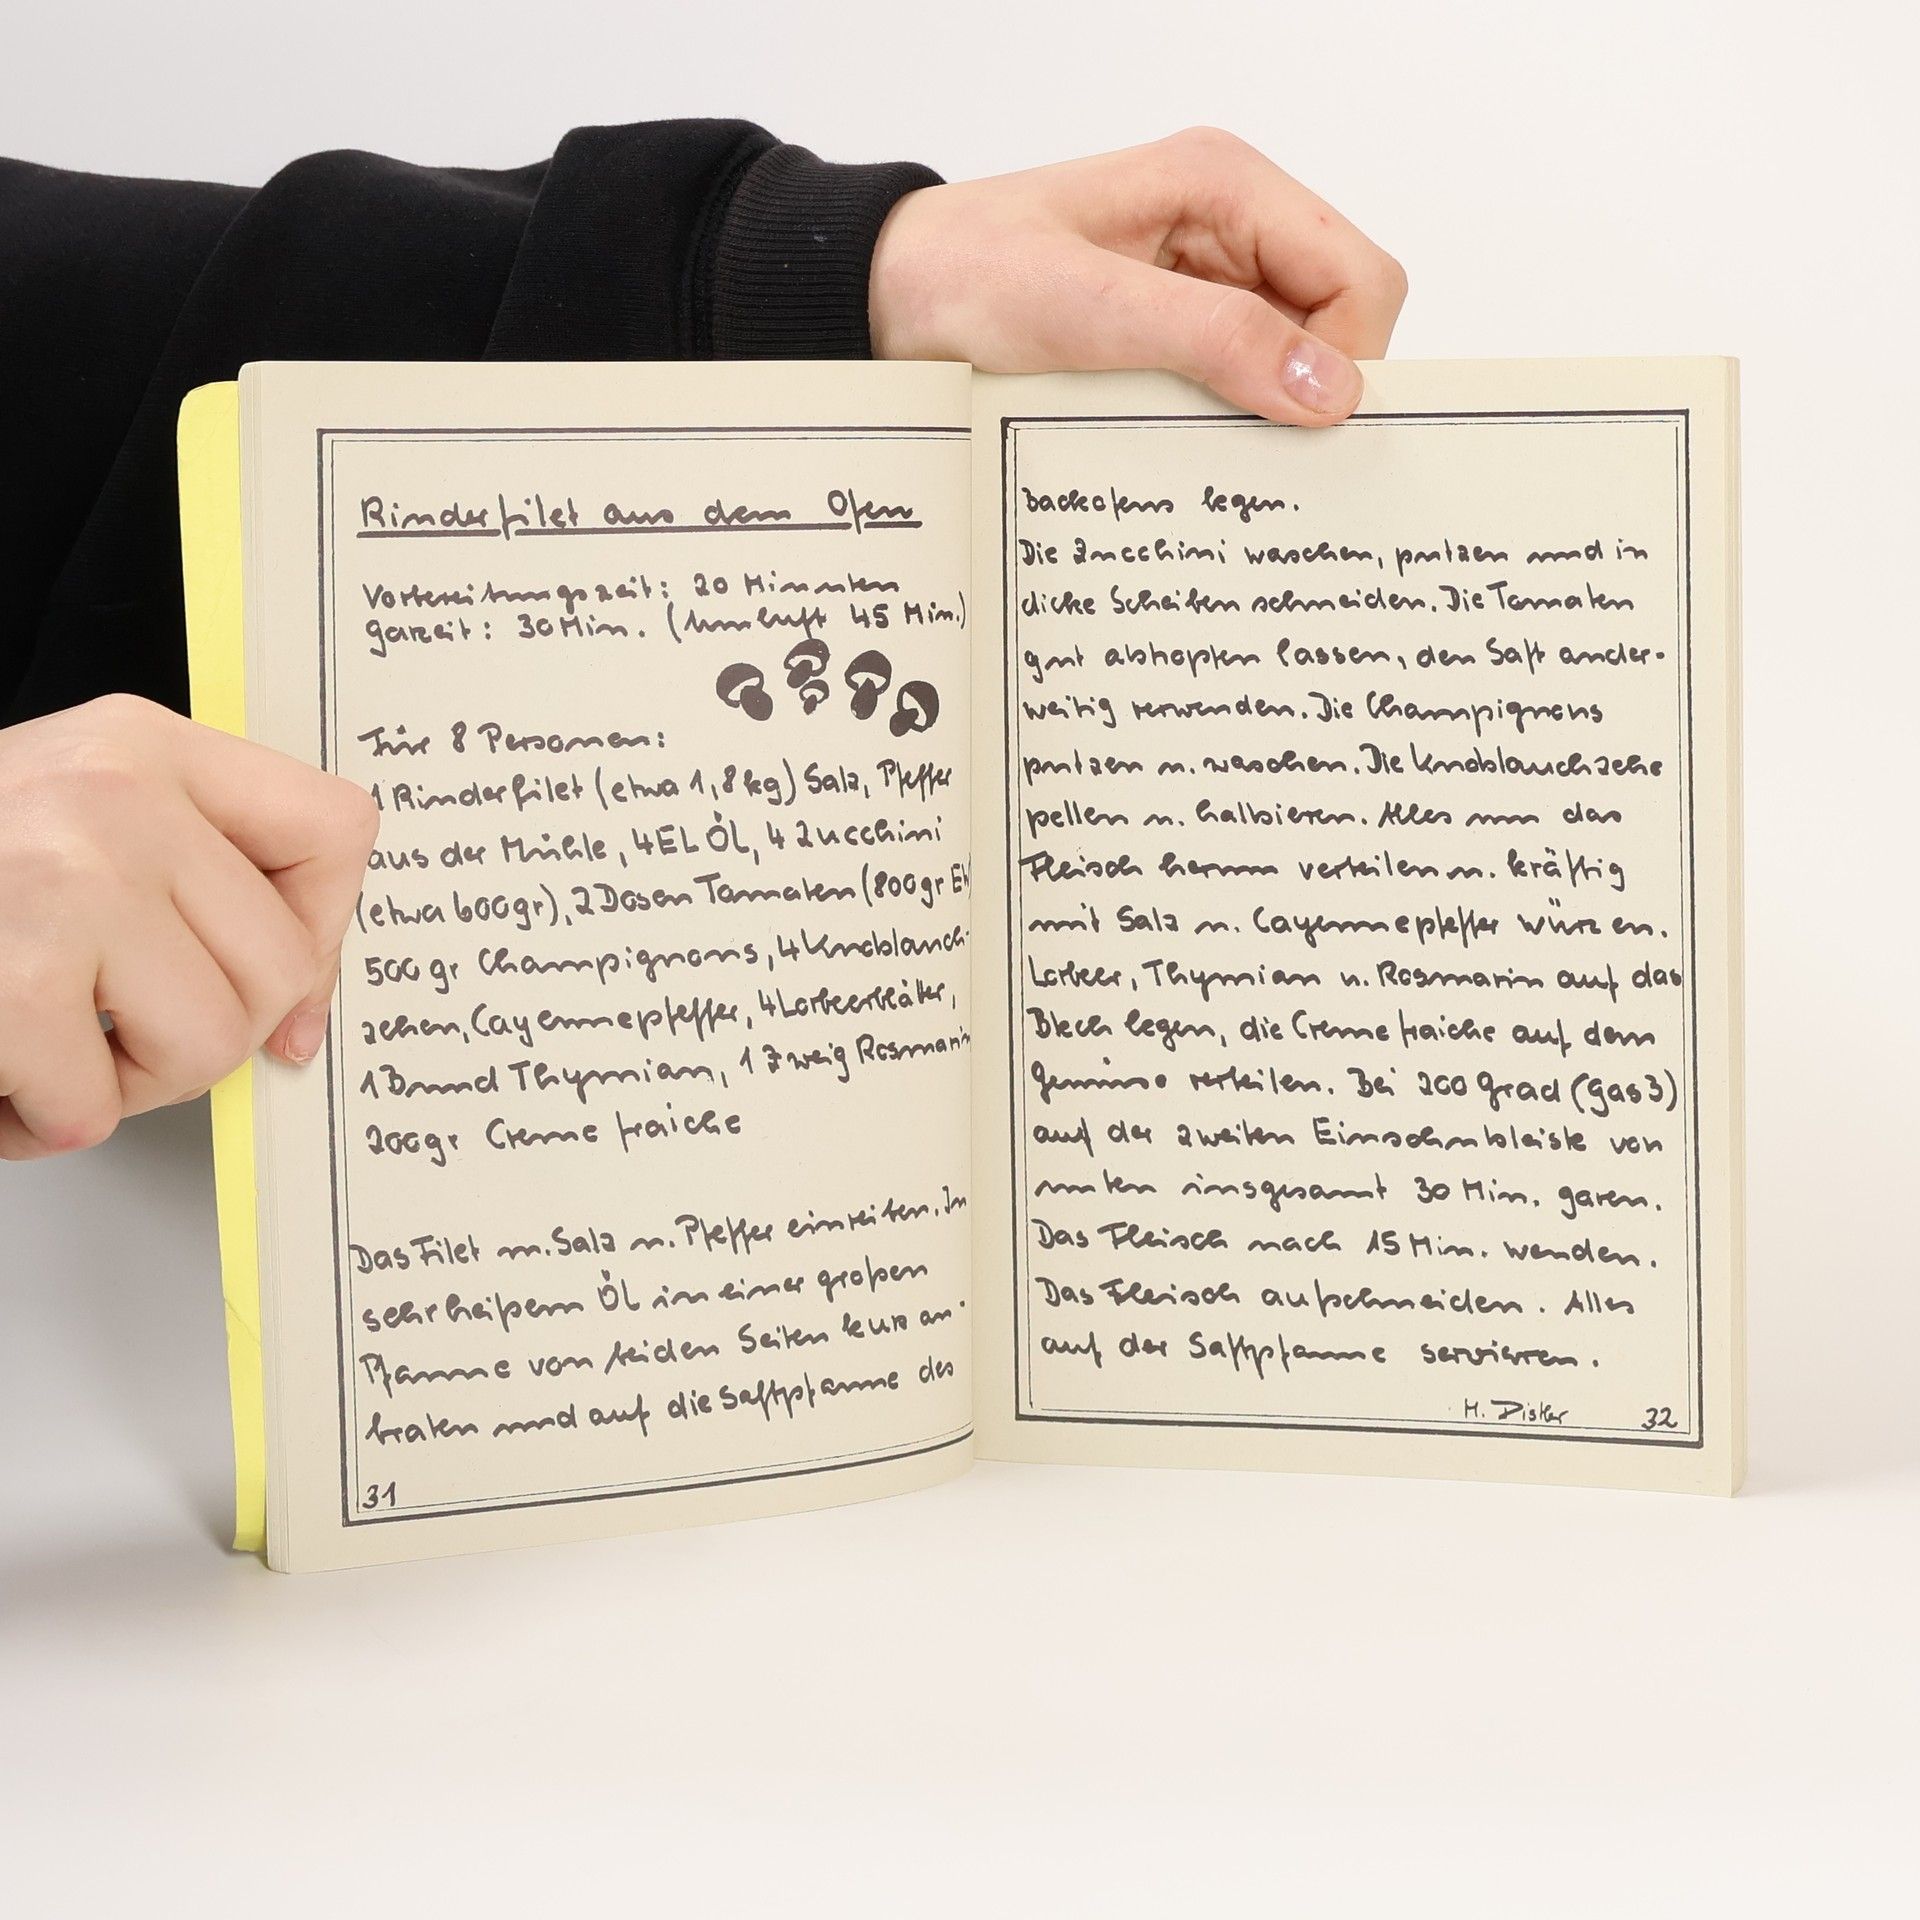 Rinderfilet aus dem Ofen
Vorbereitungszeit: 20 Minuten
Garzeit: 30 Min. (Umluft 45 Min.)
Für 8 Personen:
1 Rinderfilet (etwa 1,8 kg) Salz, Pfeffer
aus der Mühle, 4 EL ÖL, 4 Zucchini
(etwa 600gr), 2 Dosen Tomaten (800gr
500 gr Champignons, 4 Knoblauch-
zehen, Cayennepfeffer, 4 Lorbeerblätter,
1 Bund Thymian, 1 Zweig Rosmarin
200gr Creme fraiche
Das Filet m. Salz u. Pfeffer einreiben. In
sehr heißem Öl in einer großen
Pfanne von beiden Seiten kurz an-
braten und auf die Saftpfanne des
31
Backofens legen.
Die Zucchini waschen, putzen und in
dicke Scheiben schneiden. Die Tomaten
gut abtropfen lassen, den Saft ander-
weitig verwenden. Die Champignons
putzen u. waschen. Die Knoblauchzehe
pellen u. halbieren. Alles um das
Fleisch herum verteilen u. kräftig
mit Salz u. Cayennepfeffer würzen.
Lorbeer, Thymian u. Rosmarin auf das
Blech legen, die Creme fraiche auf dem
Gemüse verteilen. Bei 200 Grad (Gas 3)
auf der zweiten Einschubleiste von
unten insgesamt 30 Min. garen.
Das Fleisch nach 15 Min. wenden.
Das Fleisch aufschneiden. Alles
auf der Saftpfanne servieren.
H. Distler
32